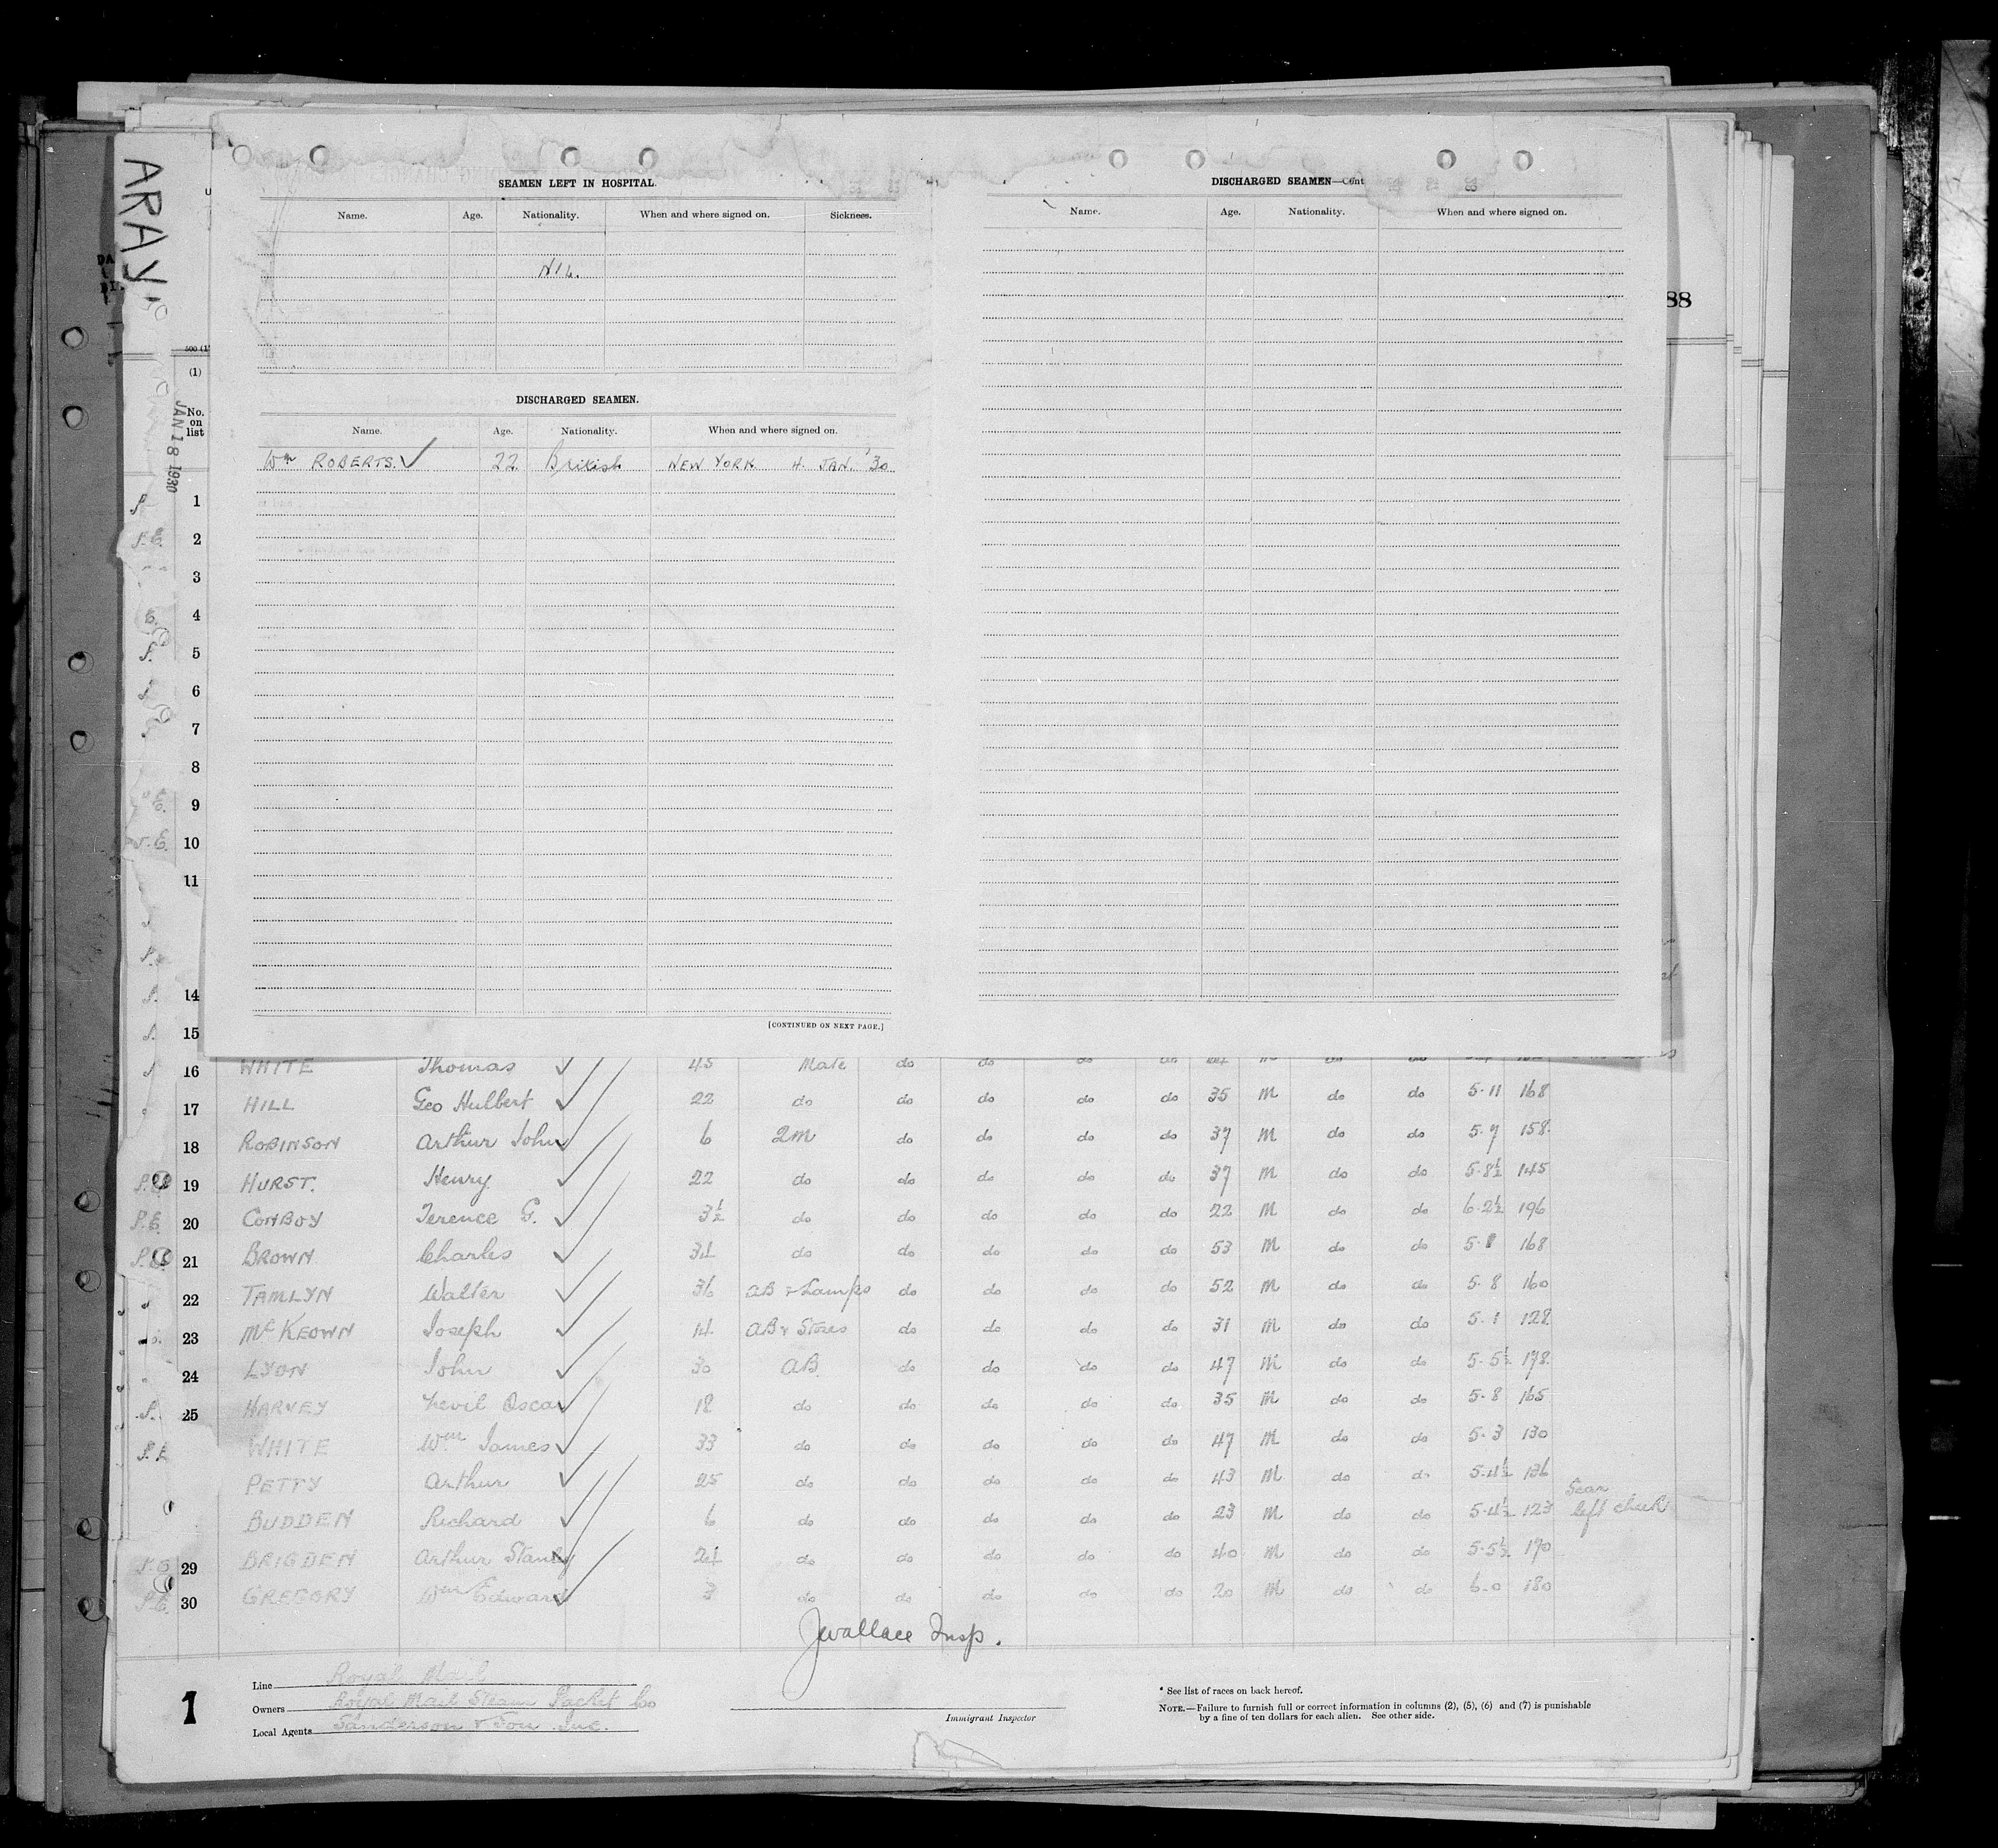 ARAY
JAN 18 1930
88
SEAMEN LEFT IN HOSPITAL.
Name. Age. Nationality. When and where signed on. Sickness.
NIL.
DISCHARGED SEAMEN.
Name. Age. Nationality. When and where signed on.
Wm ROBERTS. ✓ 22 British NEW YORK 4. JAN. '30
[CONTINUED ON NEXT PAGE.]
DISCHARGED SEAMEN—Cont
Name. Age. Nationality. When and where signed on.
(1)
No. on list
1
2
3
4
5
6
7
8
9
10
11
14
15
16 WHITE Thomas ✓ 45 Mate do do do do
17 HILL Geo Hulbert ✓ 22 do do do do do 35 M do do 5-11 168
18 ROBINSON Arthur John ✓ 6 2M do do do do 37 M do do 5-7 158
19 HURST. Henry ✓ 22 do do do do do 37 M do do 5-8½ 145
20 CONBOY Terence G. ✓ 3½ do do do do do 22 M do do 6-2½ 196
21 BROWN Charles ✓ 34 do do do do do 53 M do do 5-8 168
22 TAMLYN Walter ✓ 36 AB & Lamps do do do do 52 M do do 5-8 160
23 McKEOWN Joseph ✓ 14 AB & Stores do do do do 31 M do do 5-1 128
24 LYON John ✓ 30 AB do do do do 47 M do do 5-5½ 178
25 HARVEY Nevil Oscar ✓ 18 do do do do do 35 M do do 5-8 165
WHITE Wm James ✓ 33 do do do do do 47 M do do 5-3 130
PETTY Arthur ✓ 25 do do do do do 43 M do do 5-4½ 136
BUDDEN Richard ✓ 6 do do do do do 23 M do do 5-4½ 123 Scar left cheek
29 BRIGDEN Arthur Stanley ✓ 24 do do do do do 40 M do do 5-5½ 170
30 GREGORY Wm Edward ✓ 3 do do do do do 20 M do do 6-0 180
JWallace Insp.
1
Line Royal Mail
Owners Royal Mail Steam Packet Co
Local Agents Sanderson & Son Inc.
Immigrant Inspector
* See list of races on back hereof.
NOTE.—Failure to furnish full or correct information in columns (2), (5), (6) and (7) is punishable
by a fine of ten dollars for each alien. See other side.